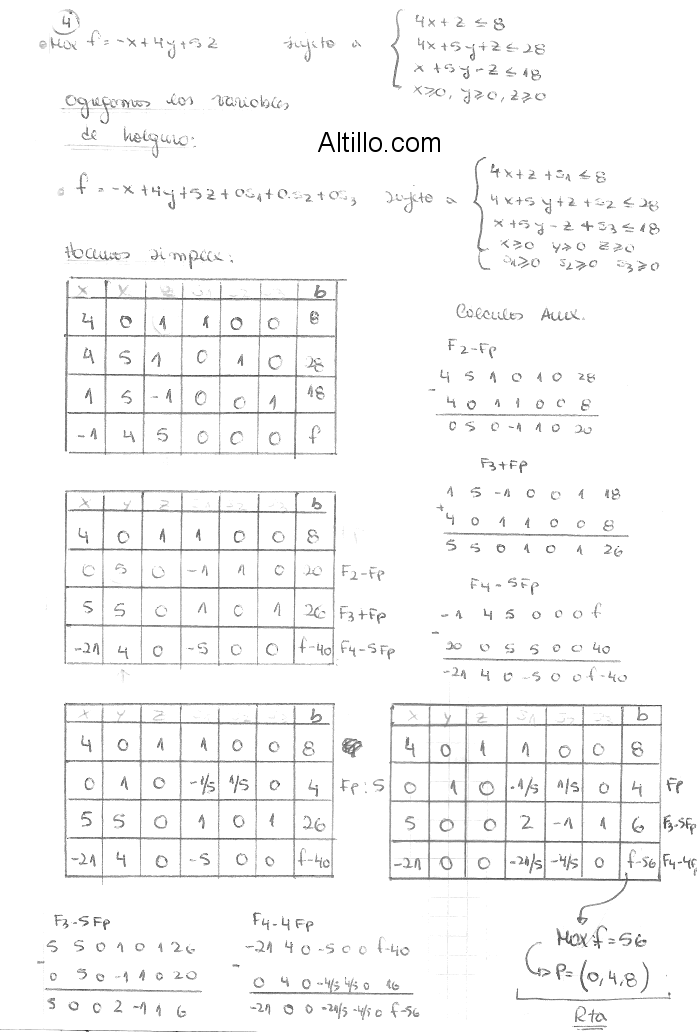 4
Max f = -x+4y+5z sujeto a
4x+z ≤ 8
4x+5y+z ≤ 28
x+5y-z ≤ 18
x≥0, y≥0, z≥0
Agregamos las variables
de holgura:
Altillo.com
f = -x+4y+5z+0s1+0.s2+0s3 sujeto a
4x+z+s1 ≤ 8
4x+5y+z+s2 ≤ 28
x+5y-z+s3 ≤ 18
x≥0 y≥0 z≥0
s1≥0 s2≥0 s3≥0
Hacemos simplex:
x y z s1 s2 s3 b
4 0 1 1 0 0 8
4 5 1 0 1 0 28
1 5 -1 0 0 1 18
-1 4 5 0 0 0 f
Calculos Aux.
F2-Fp
4 5 1 0 1 0 28
- 4 0 1 1 0 0 8
0 5 0 -1 1 0 20
F3+Fp
1 5 -1 0 0 1 18
+ 4 0 1 1 0 0 8
5 5 0 1 0 1 26
F4-5Fp
-1 4 5 0 0 0 f
- 20 0 5 5 0 0 40
-21 4 0 -5 0 0 f-40
x y z b
4 0 1 1 0 0 8
0 5 0 -1 1 0 20 F2-Fp
5 5 0 1 0 1 26 F3+Fp
-21 4 0 -5 0 0 f-40 F4-5Fp
x y z b
4 0 1 1 0 0 8
0 1 0 -1/5 1/5 0 4 Fp:5
5 5 0 1 0 1 26
-21 4 0 -5 0 0 f-40
x y z s1 s2 s3 b
4 0 1 1 0 0 8
0 1 0 -1/5 1/5 0 4 Fp
5 0 0 2 -1 1 6 F3-5Fp
-21 0 0 -21/5 -4/5 0 f-56 F4-4Fp
F3-5Fp
5 5 0 1 0 1 26
- 0 5 0 -1 1 0 20
5 0 0 2 -1 1 6
F4-4Fp
-21 4 0 -5 0 0 f-40
- 0 4 0 -4/5 4/5 0 16
-21 0 0 -21/5 -4/5 0 f-56
Max f = 56
P = (0,4,8)
Rta